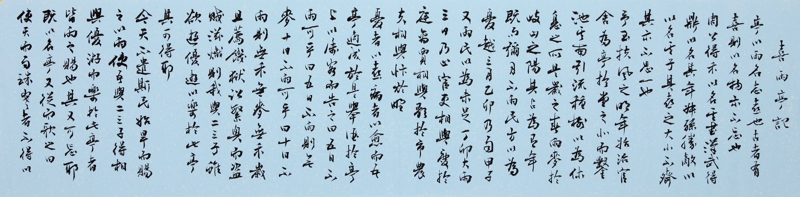 喜雨亭記
亭以雨名志喜也古者有
喜則以名物示不忘也
周公得禾以名其書漢武得
鼎以名其年叔孫勝敵以
以名其子其喜之大小不齊
其示不忘一也
予至扶風之明年始治官
舍為亭於堂之北而鑿
池其南引流種樹以為休
息之所是歲之春雨麥於
岐山之陽其占為有年
既而彌月不雨民方以為
憂越三月乙卯乃雨甲子
又雨民以為未足丁卯大雨
三日乃止官吏相與慶於
庭商賈相與歌於市農
夫相與忭於野
憂者以喜病者以愈而吾
亭適成於是舉酒於亭
上以屬客而告之曰五日不
雨可乎曰五日不雨則無
麥十日不雨可乎曰十日不
雨則無禾無麥無禾歲
且薦饑獄訟繁興而盜
賊滋熾則吾與二三子雖
欲優遊以樂於此亭
其可得耶
今天不遺斯民始旱而賜
之以雨使吾與二三子得相
與優游而樂於此亭者
皆雨之賜也其又可忘耶
既以名亭又從而歌之曰
使天而雨珠寒者不得以